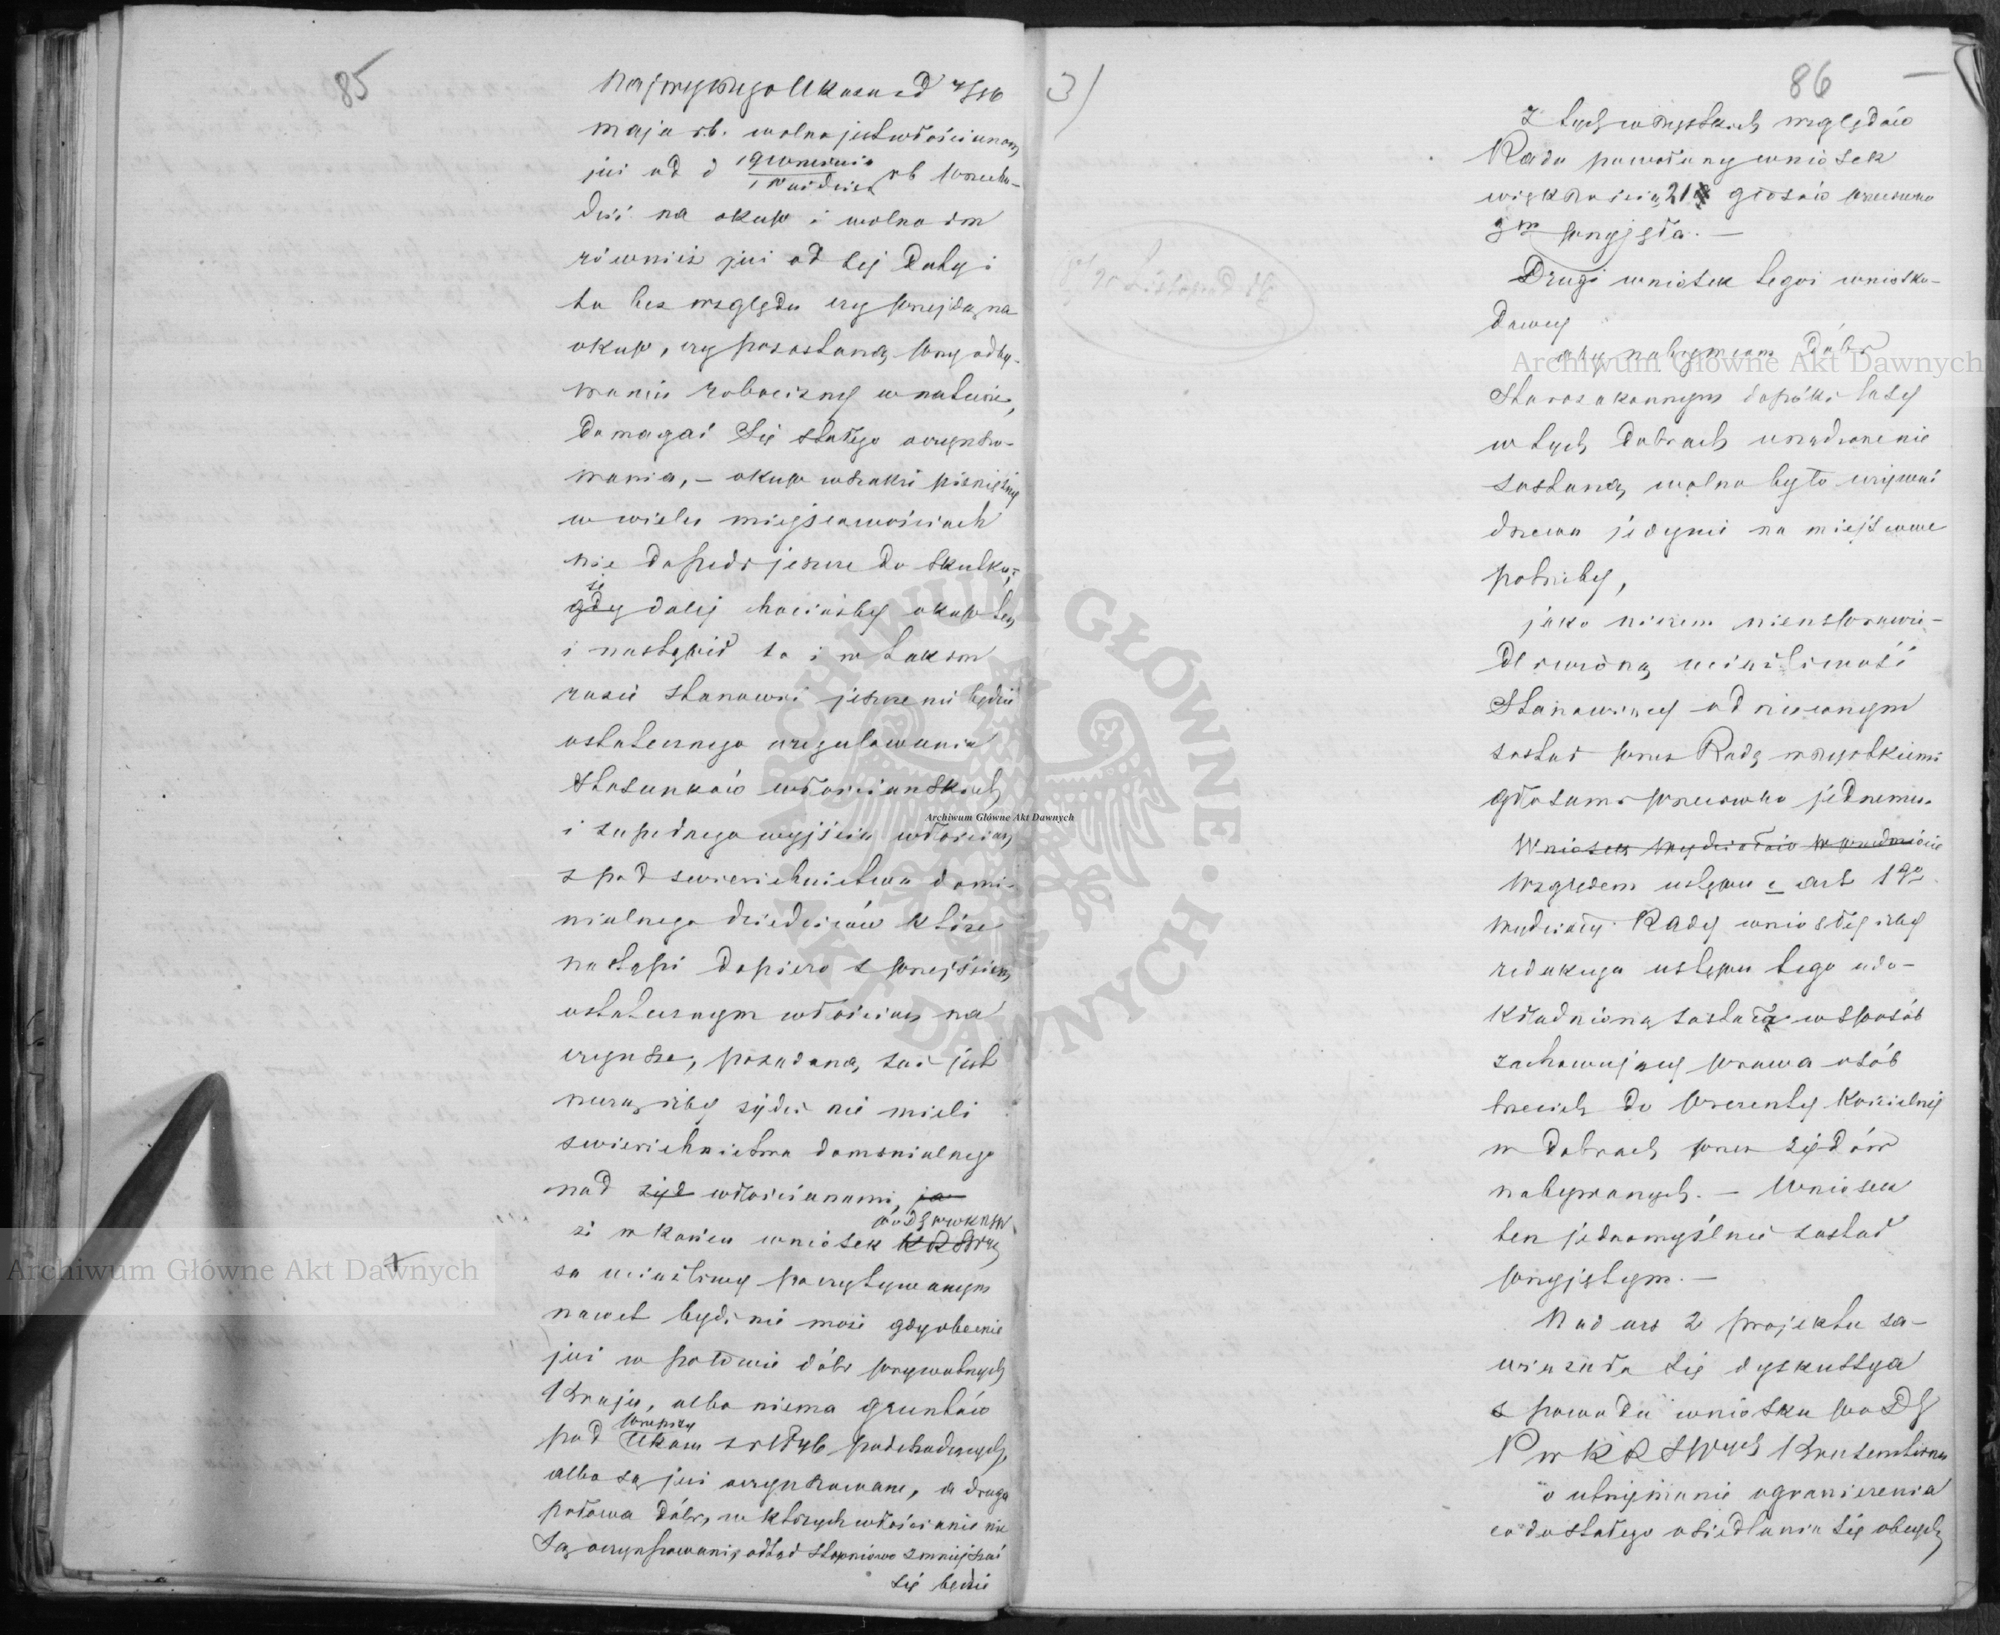 85
Najwyższego Ukazu z d 4/16
maja r.b. wolno jest włościanom
już od d 19 Września / 1 Października rb przecho-
dzić na okup i wolno im
również już od tej daty i
to bez względu czy przejdą na
okup, czy pozostaną przy odby-
waniu robocizny w naturze,
domagać się stałego oczynszo-
wania, – okup wszakże pieniężny
w wielu miejscowościach
nie doszedł jeszcze do skutku,
że gdy dalej chociażby okup ten
i nastąpił to i w takim
razie stanowić jeszcze nie będzie
ostatecznego uregulowania
Stosunków włościańskich
i zupełnego wyjścia włościan
z pod zwierzchnictwa domi-
nialnego dziedziców które
nastąpi dopiero z przejściem
ostatecznym włościan na
czynsze, pożądaną zaś jest
rzeczą, iżby żydzi nie mieli
zwierzchnictwa dominialnego
nad żyd włościanami, ja
że w końcu wniosek
za uciążliwy poczytywanym
nawet bydź nie może gdy obecnie
już w połowie dóbr prywatnych
Kraju, albo niema gruntów
pod przepisy Ukazu z r 1846 podchodzących,
albo są już oczynszowane, a druga
połowa dóbr, w których włościanie nie
są oczynszowani, odtąd stopniowo zmniejszać
się będzie
3)
86
Z tych wszystkich względów
Rada powołany wniosek
większością 21 głosów przeciwko
3m przyjęła. –
Drugi wniosek tegoż wniosko-
dawcy
aby nabywcom Dóbr
Starozakonnym dopóki lasy
w tych Dobrach urządzone nie
zostaną, wolno było używać
drzewa jedynie na miejscowe
potrzeby,
jako niczem nieusprawie-
dliwioną uciążliwość
Stanowiący odrzuconym
został przez Radę wszystkiemi
głosami przeciwko jednemu.
Wniosek Wydziałów w przedmiocie
Względem ustępu c art 1go
Wydziały Rady wniosły iżby
redakcya ustępu tego udo-
kładnioną została w sposób
zachowujący prawa osób
trzecich do prezenty Kościelnej
w Dobrach przez żydów
nabywanych. – Wniosek
ten jednomyślnie został
przyjętym. –
Nad art 2 projektu za-
wiązała się dyskussya
z powodu wniosku
P w K R S Wych Kruzensterna
o utrzymanie ograniczenia
co do stałego osiedlania się obcych
Archiwum Główne Akt Dawnych
Archiwum Główne Akt Dawnych
Archiwum Główne Akt Dawnych
ARCHIWUM GŁÓWNE • AKT DAWNYCH •